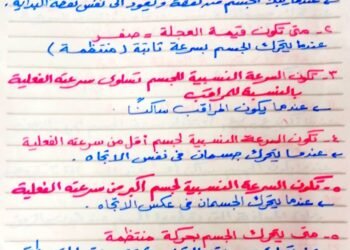 عندما يبدأ الجسم من نقطة ويعود الى نفس نقطة البداية.
٢- متى تكون قيمة العجلة = صفر
عندما يتحرك الجسم بسرعة ثابتة (منتظمة)
٣- تكون السرعة النسبية للجسم تساوى سرعته الفعلية
بالنسبة للمراقب
← عندما يكون المراقب ساكنًا.
٤- تكون السرعة النسبية لجسم أقل من سرعته الفعلية
← عندما يتحرك جسمان فى نفس الاتجاه.
٥- تكون السرعة النسبية لجسم أكبر من سرعته الفعلية
← عندما يتحرك الجسمان فى عكس الاتجاه.
٥- متى يتحرك الجسم بحركة منتظمة